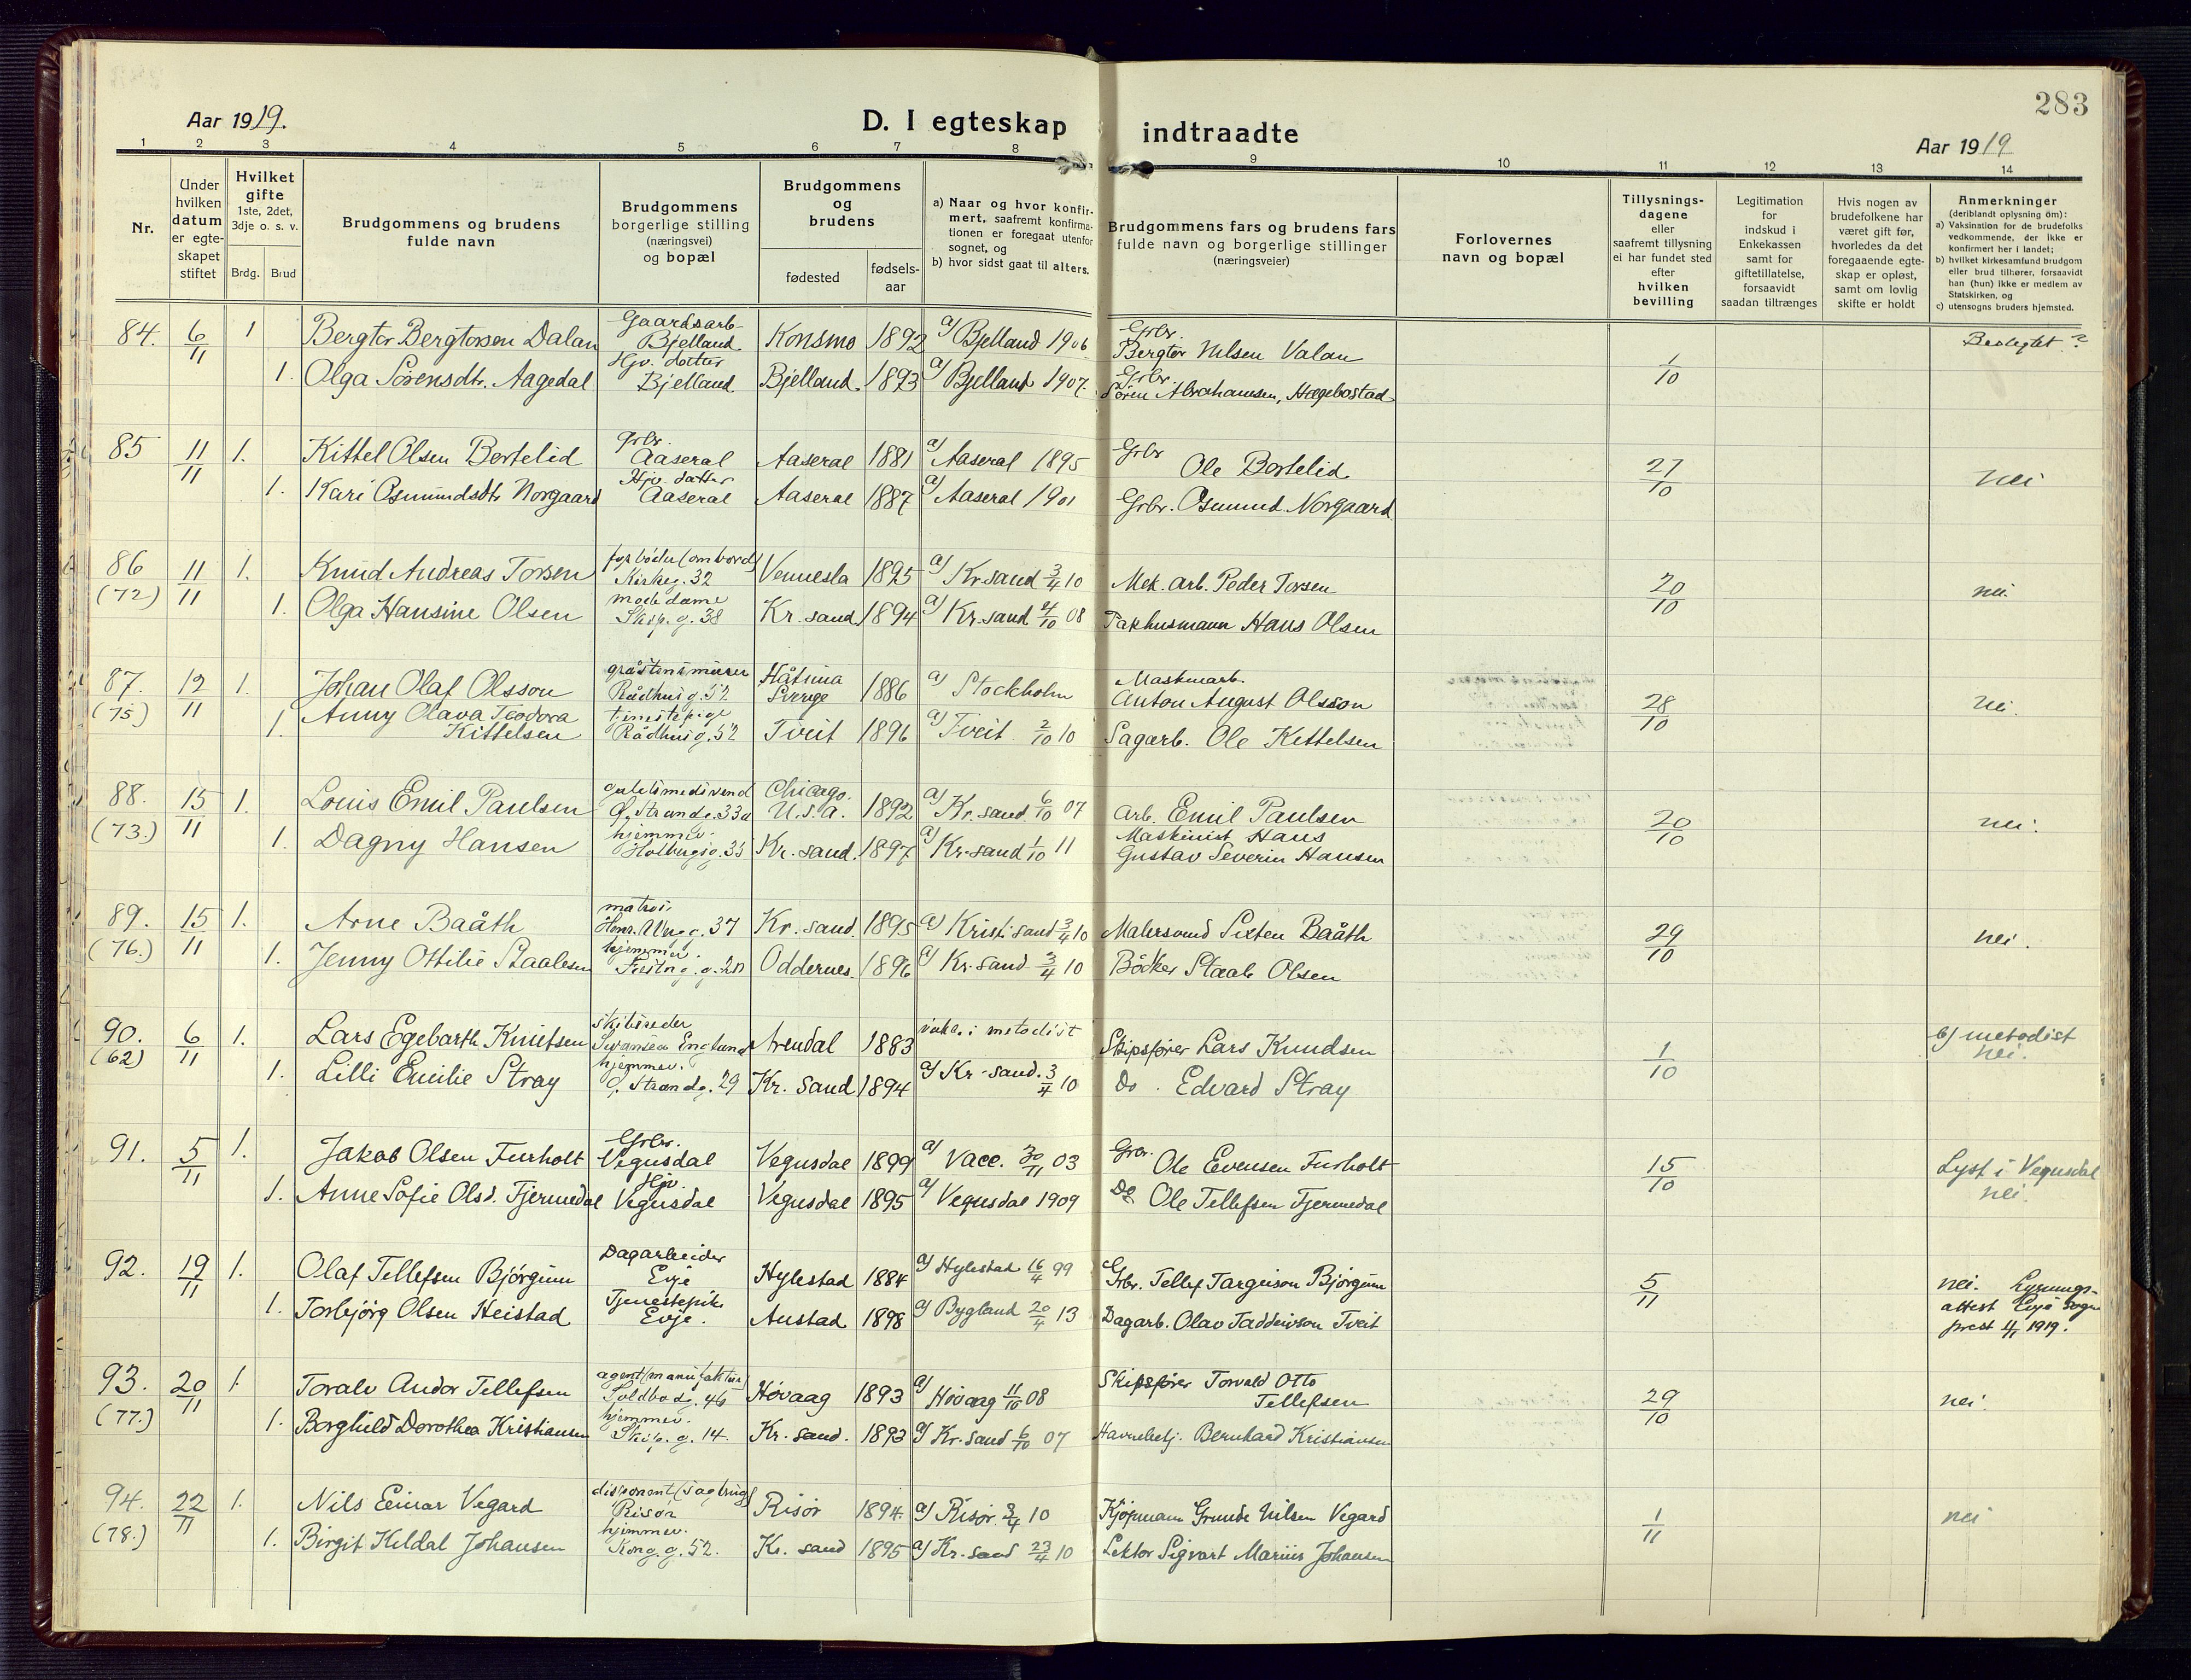 283
Aar 1919.
D. I egteskap indtraadte
Aar 1919
1 2 3 4 5 6 7 8 9 10 11 12 13 14
Nr.
Under hvilken datum er egteskapet stiftet
Hvilket gifte 1ste, 2det, 3dje o. s. v.
Brdg. Brud
Brudgommens og brudens fulde navn
Brudgommens borgerlige stilling (næringsvei) og bopæl
Brudgommens og brudens
fødested fødsels-aar
a) Naar og hvor konfirmert, saafremt konfirmationen er foregaat utenfor sognet, og
b) hvor sidst gaat til alters.
Brudgommens fars og brudens fars fulde navn og borgerlige stillinger (næringsveier)
Forlovernes navn og bopæl
Tillysningsdagene eller saafremt tillysning ei har fundet sted efter hvilken bevilling
Legitimation for indskud i Enkekassen samt for giftetillatelse, forsaavidt saadan tiltrænges
Hvis nogen av brudefolkene har været gift før, hvorledes da det foregaaende egteskap er opløst, samt om lovlig skifte er holdt
Anmerkninger (deriblandt oplysning om):
a) Vaksination for de brudefolks vedkommende, der ikke er konfirmert her i landet;
b) hvilket kirkesamfund brudgom eller brud tilhører, forsaavidt han (hun) ikke er medlem av Statskirken, og
c) utensogns bruders hjemsted.
84. 6/11 1 Bergtor Bergtorsen Dalan Gaardsarb. Bjelland Konsmo 1892 a) Bjelland 1906 Grbr. Bergtor Nilsen Valan 1/10 Beslegtet?
1. Olga Sørensdtr. Aagedal Hjv. datter Bjelland Bjelland 1893 a) Bjelland 1907. Grbr. Søren Abrahamsen, Hægebostad
85 11/11 1. Kittel Olsen Bortelid Grbr. Aaseral Aaseral 1881 a) Aaseral 1895 Grbr Ole Bortelid 27/10 nei
1. Kari Osmundsdtr Norgaard Hjv. datter Aaseral Aaseral 1887 a) Aaseral 1901 Grbr. Osmund Norgaard
86 (72) 11/11 1. Knud Andreas Torsen (ombord) Kirkeg. 32 Vennesla 1895 a) Kr.sand 3/4 10 Mek. arb. Peder Torsen 20/10 nei.
1. Olga Hansine Olsen modedame Skip. g. 38 Kr. sand 1894 a) Kr.sand 4/10 08 Pakhusmann Hans Olsen
87. (75) 12/11 1. Johan Olaf Olsson gråstensmurer Rådhusg. 52 Håtuna Sverige 1886 a) Stockholm Maskinarb. Anton August Olsson 28/10 nei.
1. Anny Olava Teodora Kittelsen Rådhusg. 52 Tveit 1896 a) Tveit 2/10 10 Sagarb. Ole Kittelsen
88. (73.) 15/11 1. Louis Emil Paulsen Ø. Strandg. 33a Chicago. U.S.A. 1892 a) Kr.sand. 6/10 07 Arb. Emil Paulsen 20/10 nei.
1. Dagny Hansen hjemmev. Holbergsg. 35 Kr. sand. 1897 a) Kr.sand 1/10 11 Maskinist Hans Gustav Severin Hansen
89. (76.) 15/11 1. Arne Baåth matros. 37 Kr. sand. 1895 a) Kristi.sand 3/4 10 Malersvend Sixten Baåth 29/10 nei.
1. Jenny Ottilie Staalesen hjemmev. Festn.g. g. 20 Oddernes 1896 a) Kr.sand 3/4 10 Bödker Staale Olsen
90. (62) 6/11 1. Lars Egebarth Knutsen skibsreder Swansea England Arendal 1883 metodist Skipsfører Lars Knudsen 1/10 b) metodist nei.
1. Lilli Emilie Stray hjemmev. Ø. Strandg. 29 Kr. sand 1894 a) Kr-sand. 3/4 10 Do. Edvard Stray
91. 5/11 1. Jakob Olsen Furholt Grbr. Vegusdal Vegusdal 1899 a) Vacc. 30/11 03 Grbr. Ole Evensen Furholt 15/10 Lyst i Vegusdal nei.
1. Anne Sofie Olsd. Fjermedal Hjv. Vegusdal Vegusdal 1895 a) Vegusdal 1909 Do Ole Tellefsen Fjermedal
92. 19/11 1. Olaf Tellefsen Bjørgum Dagarbeider Evje Hylestad 1884 a) Hylestad 16/4 99 Grbr. Tellef Targeison Bjørgum 5/11 nei. Lysningsattest Evje sogneprest 4/11 1919.
1. Torbjörg Olsen Heistad Tjenestepike Evje. Austad 1898 a) Bygland 20/4 13 Dagarb. Olav Taddeivson Tveit
93. (77.) 20/11 1 Toralv Andor Tellefsen agent (manufaktur) Toldbodg. 46 Høvaag 1893 a) Høvaag 11/10 08 Skipsfører Torvald Otto Tellefsen 29/10 nei.
1. Borghild Dorothea Kristiansen hjemmev. Skip. g. 14. Kr. sand. 1893 a) Kr.sand 6/10 07 Havnebetj. Bernhard Kristiansen
94. (78.) 22/11 1. Nils Einar Vegard disponent (sagbrug) Risør Risør 1894. a) Risør 3/4 10 Kjøpmann Grunde Nilsen Vegard 1/11 nei
1. Birgit Kildal Johansen hjemmev. Kong. g. 52. Kr. sand 1895 a) Kr.sand 23/4 10 Lektor Sigvart Marius Johansen